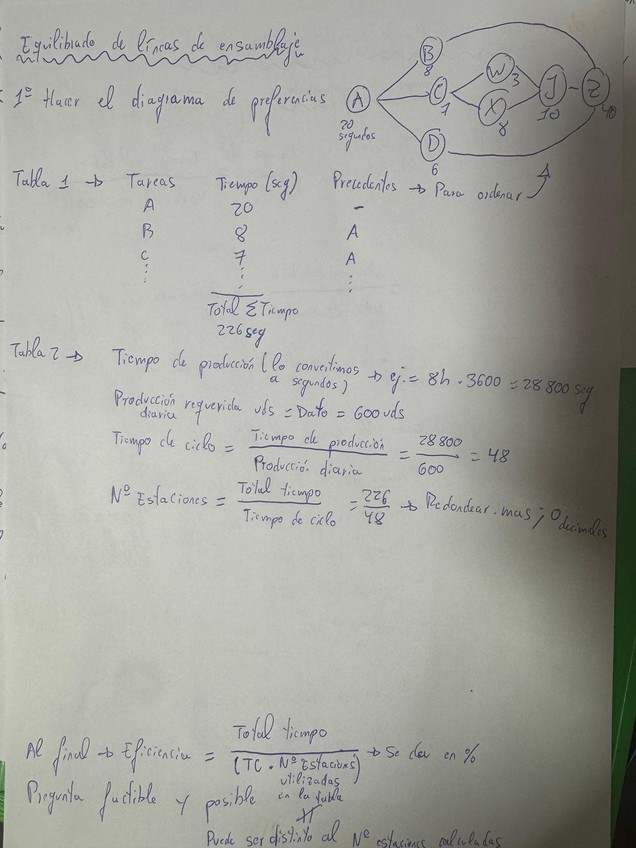 Equilibrado de líneas de ensamblaje
1º Hacer el diagrama de preferencias
A
20
segundos
B
8
C
7
D
6
W
3
X
8
J
10
Z
40
Tabla 1 → Tareas Tiempo (seg) Precedentes → Para ordenar
A 20 -
B 8 A
C 7 A
Total Σ Tiempo
226 seg
Tabla 2 → Tiempo de producción (lo convertimos a segundos) → ej. = 8h · 3600 = 28 800 seg
Producción requerida uds = Dato = 600 uds
diaria
Tiempo de ciclo = Tiempo de producción / Producción diaria = 28 800 / 600 = 48
Nº Estaciones = Total tiempo / Tiempo de ciclo = 226 / 48 → Redondear. mas; 0 decimales
Al final → Eficiencia = Total tiempo / (TC · Nº Estaciones) → Se da en %
utilizadas
Pregunta factible y posible en la tabla
Puede ser distinto al Nº estaciones calculadas